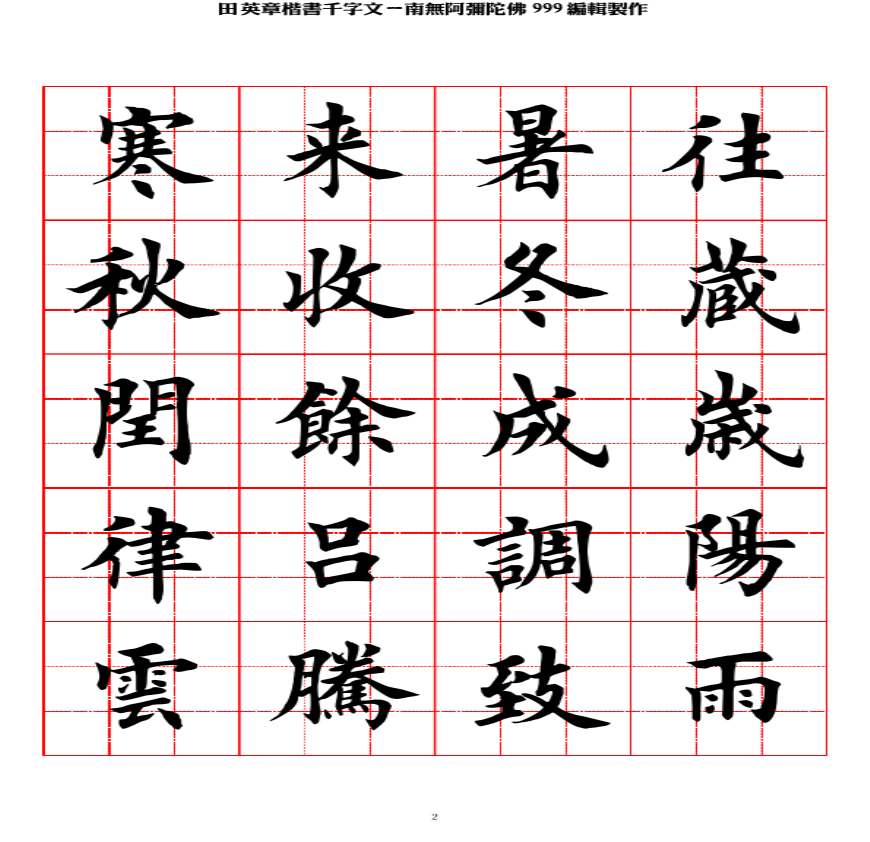 田英章楷書千字文－南無阿彌陀佛 999 編輯製作
寒来暑往
秋收冬蔵
閏餘成歳
律吕調陽
雲騰致雨
2